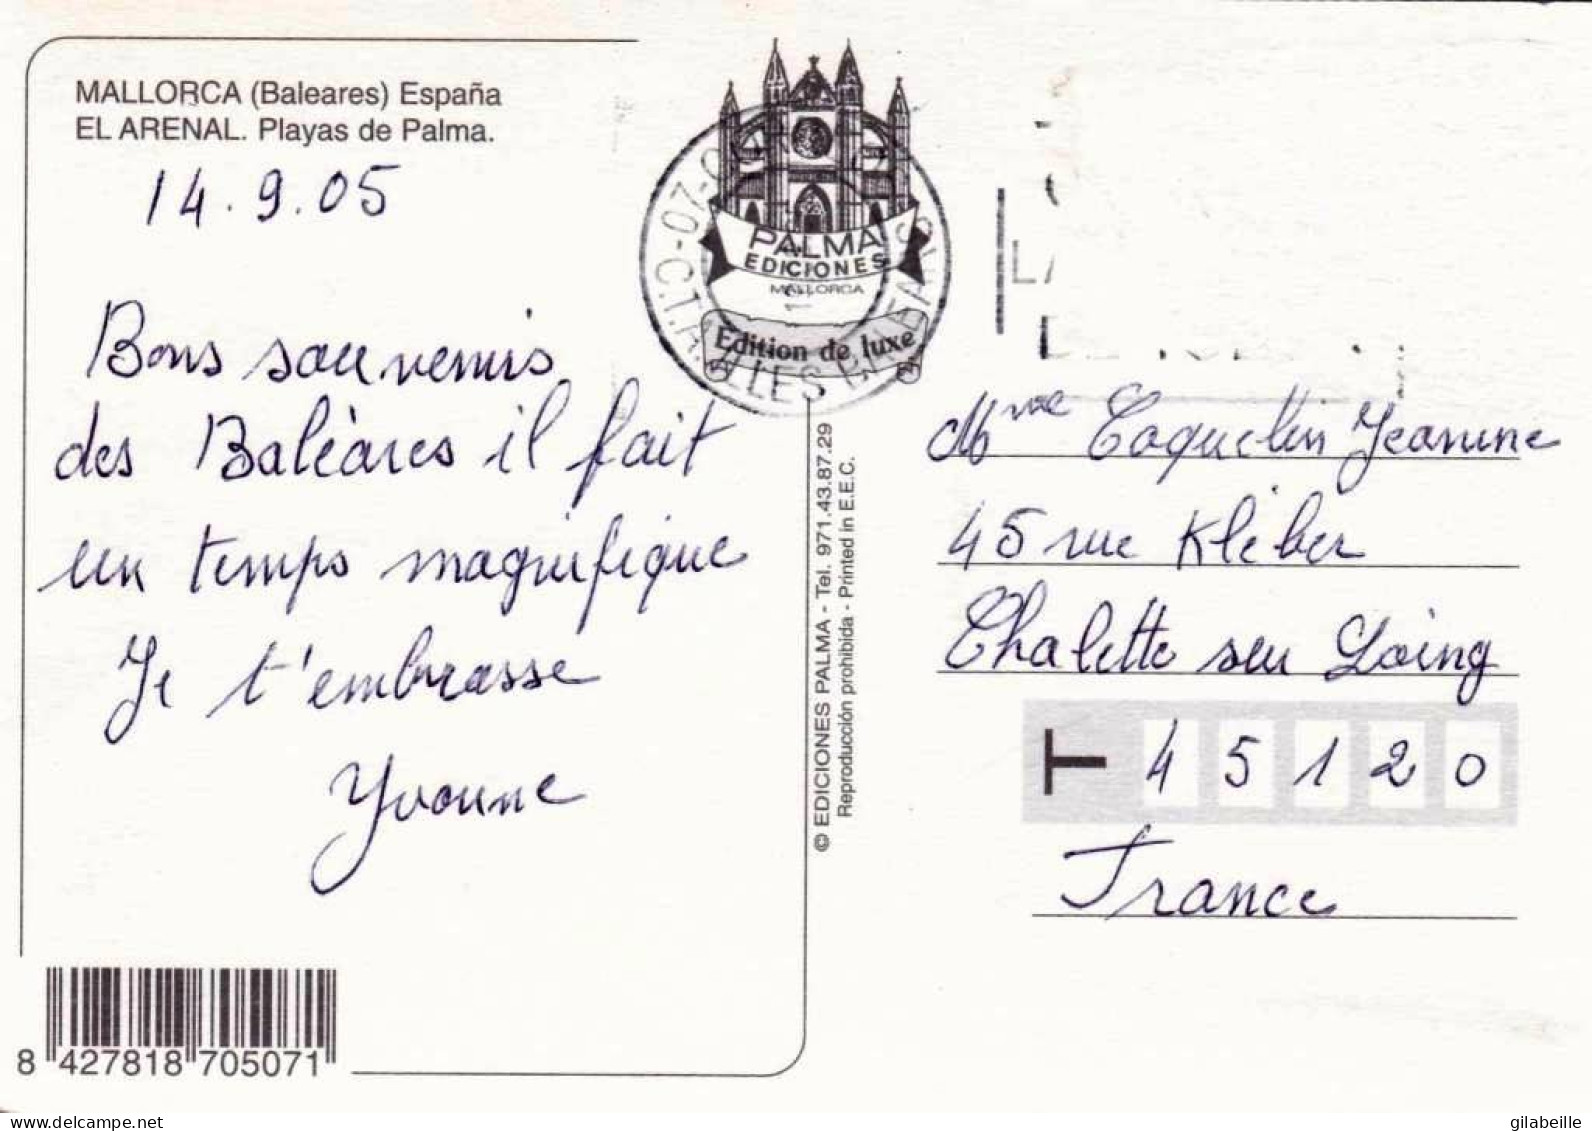 MALLORCA (Baleares) España
EL ARENAL. Playas de Palma.
14.9.05
Bons souvenirs
des Baléares il fait
un temps magnifique
Je t'embrasse
Yvonne
8 427818 705071
PALMA
EDICIONES
MALLORCA
Edition de luxe
© EDICIONES PALMA - Tel. 971.43.87.29
Reproducción prohibida - Printed in E.E.C.
Mme Coquelin Jeanine
45 rue Kléber
Chalette sur Loing
T 4 5 1 2 0
France
gilabeille